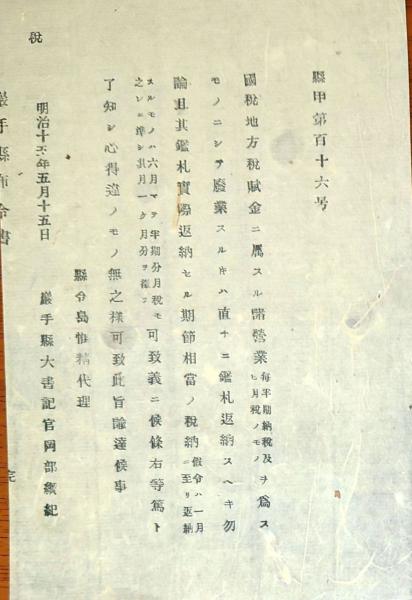 縣甲第百十六号
國税地方税賦金ニ属スル諸營業毎半期納税及ヒ月税ノモノヲ為ス
モノニシテ廢業スル片ハ直チニ鑑札返納スヘキ勿
論且其鑑札實際返納セル期節相當ノ税納假令ハ一月ニ至リ返納
スルモノハ六月マテ半期分月税モ之レニ準シ其月一ケ月分ヲ可致義ニ候條右等篤ト
了知シ心得違ノモノ無之様可致此旨諭達候事
縣令島惟精代理
明治十五年五月十五日 巖手縣大書記官岡部綱紀
税
巖手縣布令書
完